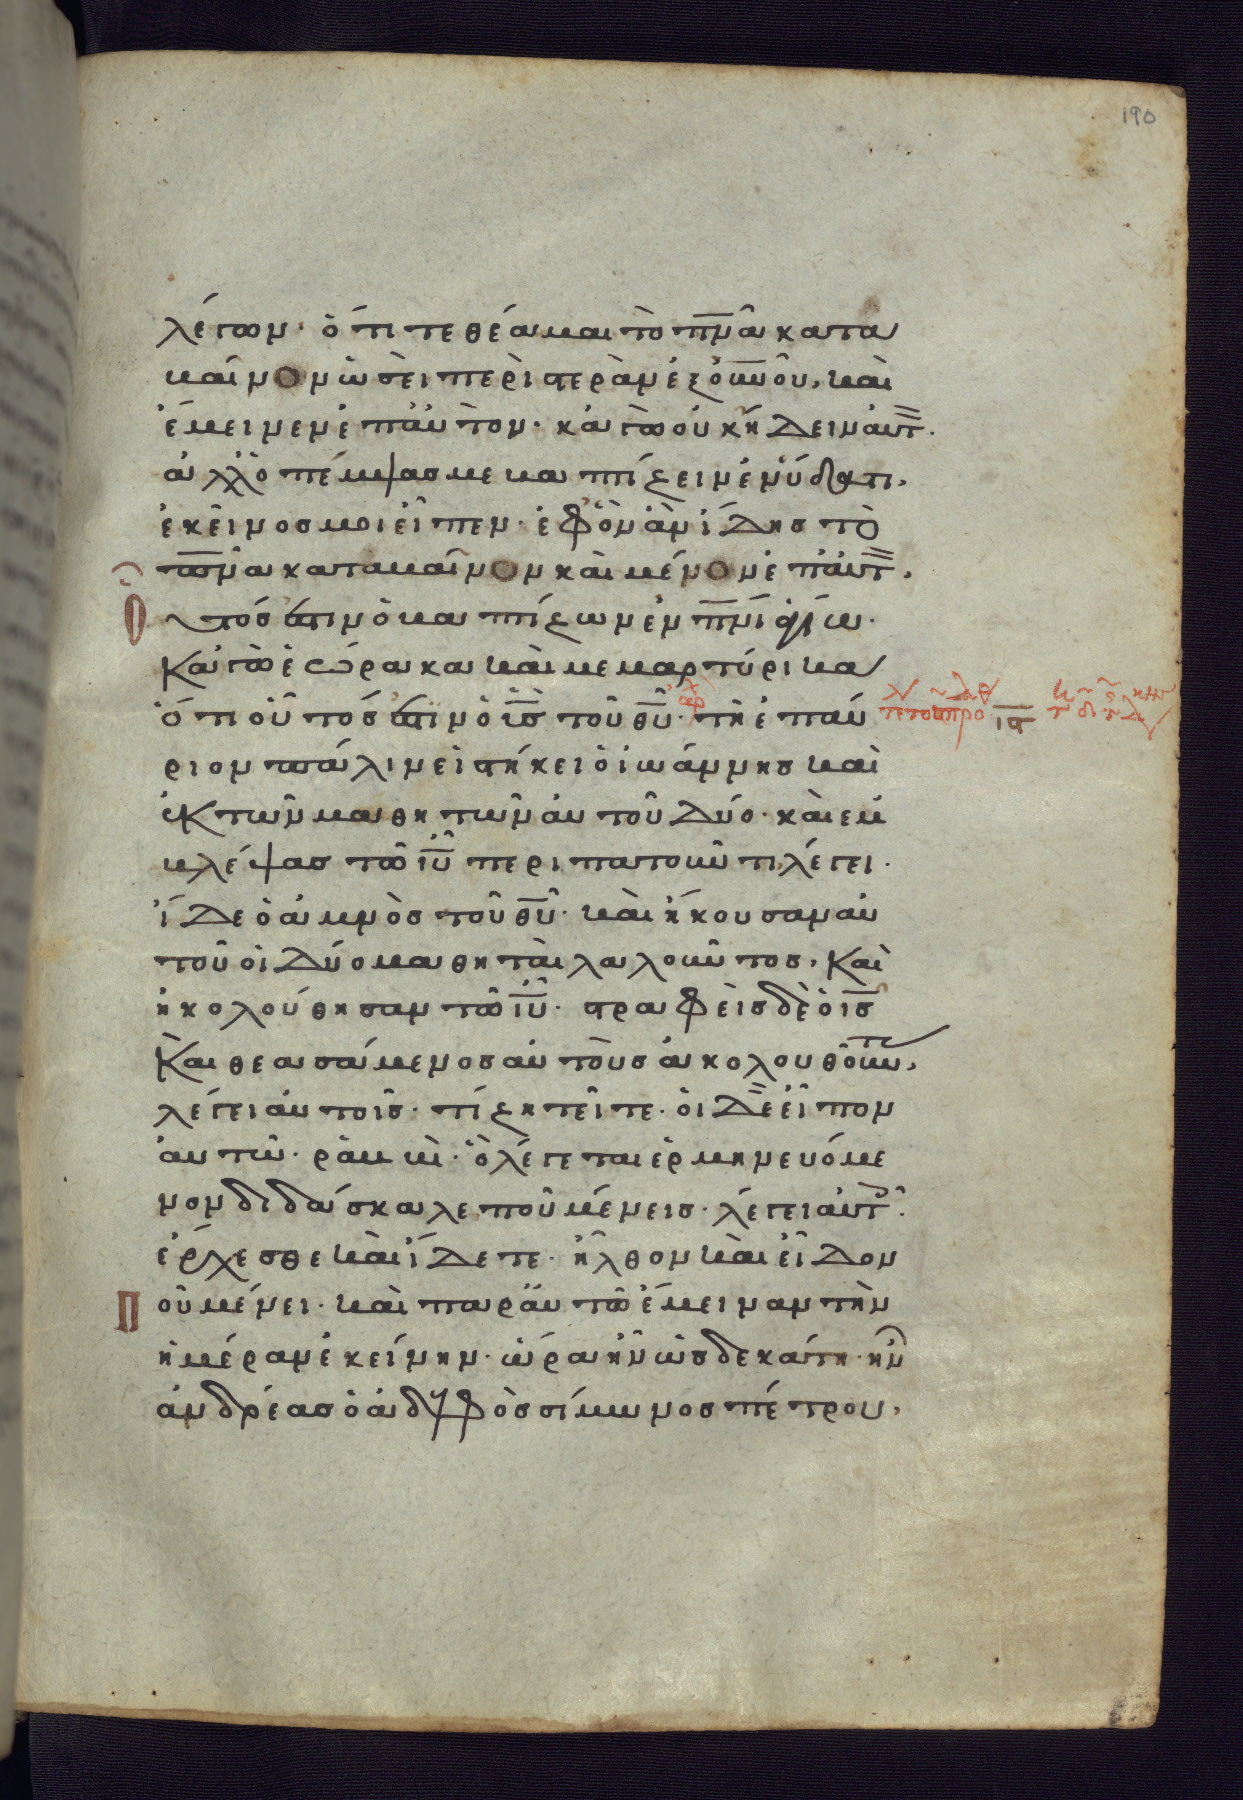 190
λέγων· ὅτι τεθέαμαι τὸ πνᾶ κατα
βαῖνον ὡσεὶ περιστερὰν ἐξ οὐνοῦ, καὶ
ἔμεινεν ἐπ αὐτον· κἀγὼ οὐκ ἤδειν αὐτ.
ἀλλ ὁ πέμψας με βαπτίζειν ἐν ὕδατι,
ἐκεῖνος μοι εἶπεν· ἐφ ὃν ἂν ἴδῃς τὸ
πνᾶ καταβαῖνον καὶ μένον ἐπ αὐτ,
οὗτός ἐστιν ὁ βαπτίζων ἐν πνι ἁγίω·
Κἀγὼ ἑώρακα καὶ μεμαρτύρικα
ὅτι οὗτός ἐστιν ὁ ις τοῦ θυ· τῇ ἐπαύ
ριον πάλιν εἱστήκει ὁ ἰωάννης καὶ
ἐκ τῶν μαθητῶν αὐτοῦ δύο· καὶ ἐμ
βλέψας τῶ ιυ περιπατοῦντι λέγει·
ἴδε ὁ ἀμνὸς τοῦ θυ· καὶ ἤκουσαν αὐ
τοῦ οἱ δύο μαθηταὶ λαλοῦντος, Καὶ
ἠκολούθησαν τῶ ιυ· στραφεὶς δὲ ὁ ις
Καὶ θεασάμενος αὐτοὺς ἀκολουθοῦντ,
λέγει αὐτοῖς· τί ζητεῖτε· οἱ δὲ εἶπον
αὐτῶ· ῥαββὶ· ὃ λέγεται ἑρμηνευόμε
νον διδάσκαλε ποῦ μένεις· λέγει αὐτ·
ἔρχεσθε καὶ ἴδετε· ἦλθον καὶ εἶδον
ποῦ μένει· καὶ παρ αὐτῶ ἔμειναν τὴν
ἡμέραν ἐκείνην· ὥρα ἦν ὡς δεκάτη· ἦν
ἀνδρέας ὁ ἀδελφὸς σίμωνος πέτρου,